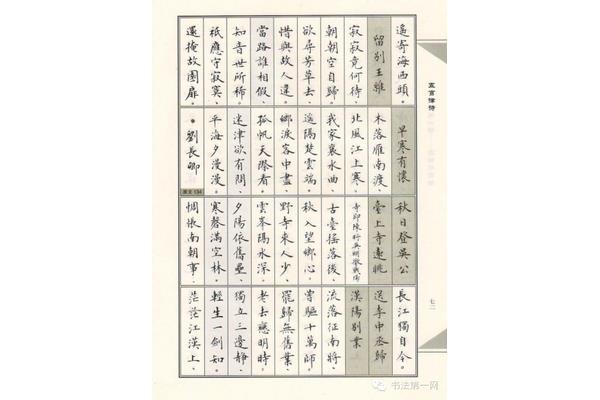 遙寄海西頭。
留別王維
寂寂竟何待、
朝朝空自歸、
欲尋芳草去、
惜與故人違。
當路誰相假、
知音世所稀。
祇應守寂寞、
還掩故園扉。
早寒有懷
木落雁南渡、
北風江上寒。
我家襄水曲、
遙隔楚雲端。
鄉淚客中盡、
孤帆天際看。
迷津欲有問、
平海夕漫漫。
劉長卿
原文134
秋日登吳公
臺上寺遠眺
寺即陳將吳明徹戰場
古臺搖落後、
秋入望鄉心。
野寺來人少、
雲峯隔水深。
夕陽依舊壘、
寒磬滿空林。
惆悵南朝事、
長江獨自今。
送李中丞歸
漢陽別業
流落征南將、
曾驅十萬師。
罷歸無舊業、
老去戀明時。
獨立三邊靜、
輕生一劍知。
茫茫江漢上、
五言律詩
七二
书法第一网